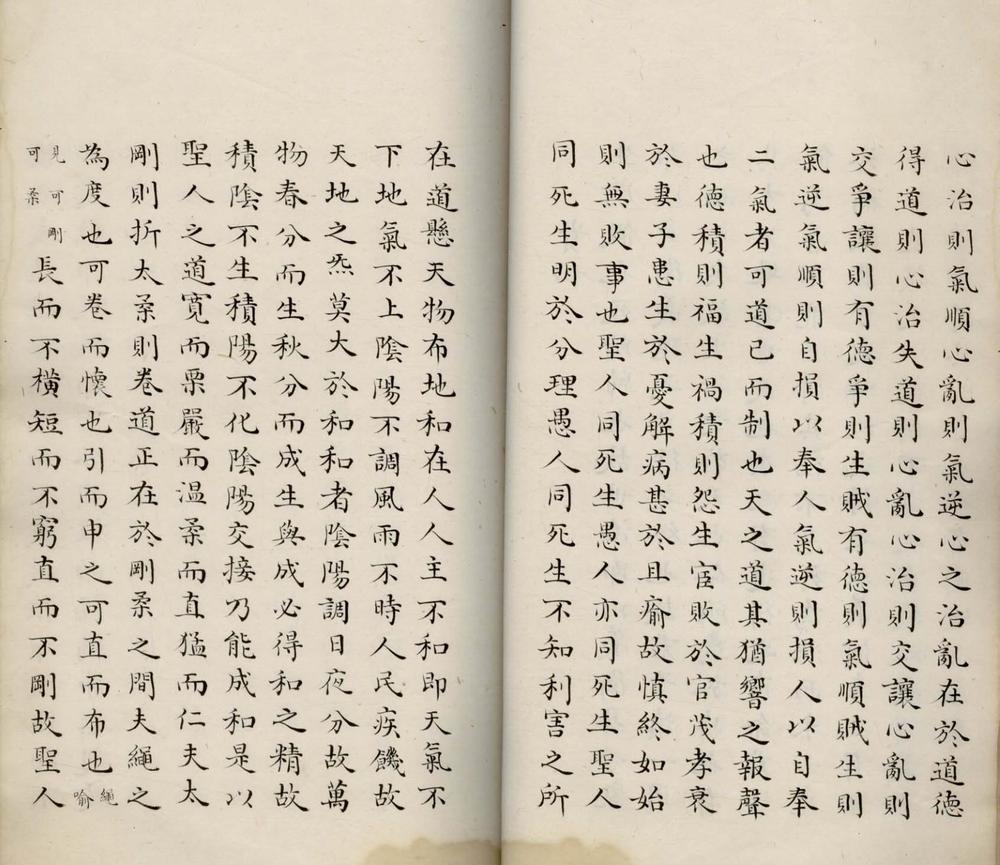 心治則氣順心亂則氣逆心之治亂在於道德
得道則心治失道則心亂心治則交讓心亂則
交爭讓則有德爭則生賊有德則氣順賊生則
氣逆氣順則自損以奉人氣逆則損人以自奉
二氣者可道己而制也天之道其猶響之報聲
也德積則福生禍積則怨生宦敗於官茂孝衰
於妻子患生於憂解病甚於且瘉故慎終如始
則無敗事也聖人同死生愚人亦同死生聖人
同死生明於分理愚人同死生不知利害之所
在道懸天物布地和在人人主不和即天氣不
下地氣不上陰陽不調風雨不時人民疾饑故
天地之炁莫大於和和者陰陽調日夜分故萬
物春分而生秋分而成生與成必得和之精故
積陰不生積陽不化陰陽交接乃能成和是以
聖人之道寬而栗嚴而溫柔而直猛而仁夫太
剛則折太柔則卷道正在於剛柔之間夫繩之
為度也可卷而懷也引而申之可直而布也繩喻
見可剛可柔長而不橫短而不窮直而不剛故聖人